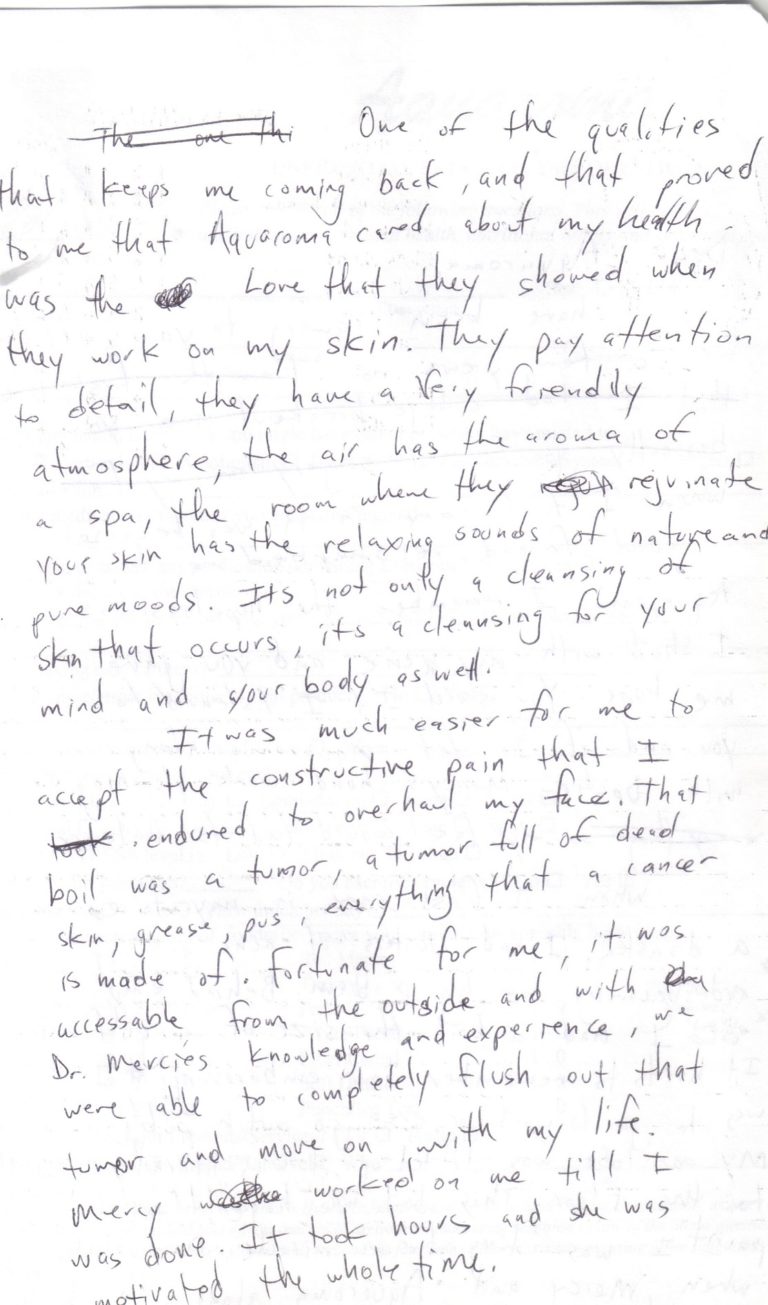 The one Thi One of the qualities
that keeps me coming back, and that proved
to me that Aquaroma cared about my health
was the Love that they showed when
they work on my skin. They pay attention
to detail, they have a very friendily
atmosphere, the air has the aroma of
a spa, the room where they rejuvinate
your skin has the relaxing sounds of nature and
pure moods. Its not only a cleansing of
skin that occurs, its a cleansing for your
mind and your body as well.
It was much easier for me to
accept the constructive pain that I
took endured to overhaul my face. That
boil was a tumor, a tumor full of dead
skin, grease, pus, everything that a cancer
is made of. Fortunate for me, it was
accessable from the outside and with
Dr. Mercies knowledge and experience, we
were able to completely flush out that
tumor and move on with my life.
Mercy worked on me till I
was done. It took hours and she was
motivated the whole time.